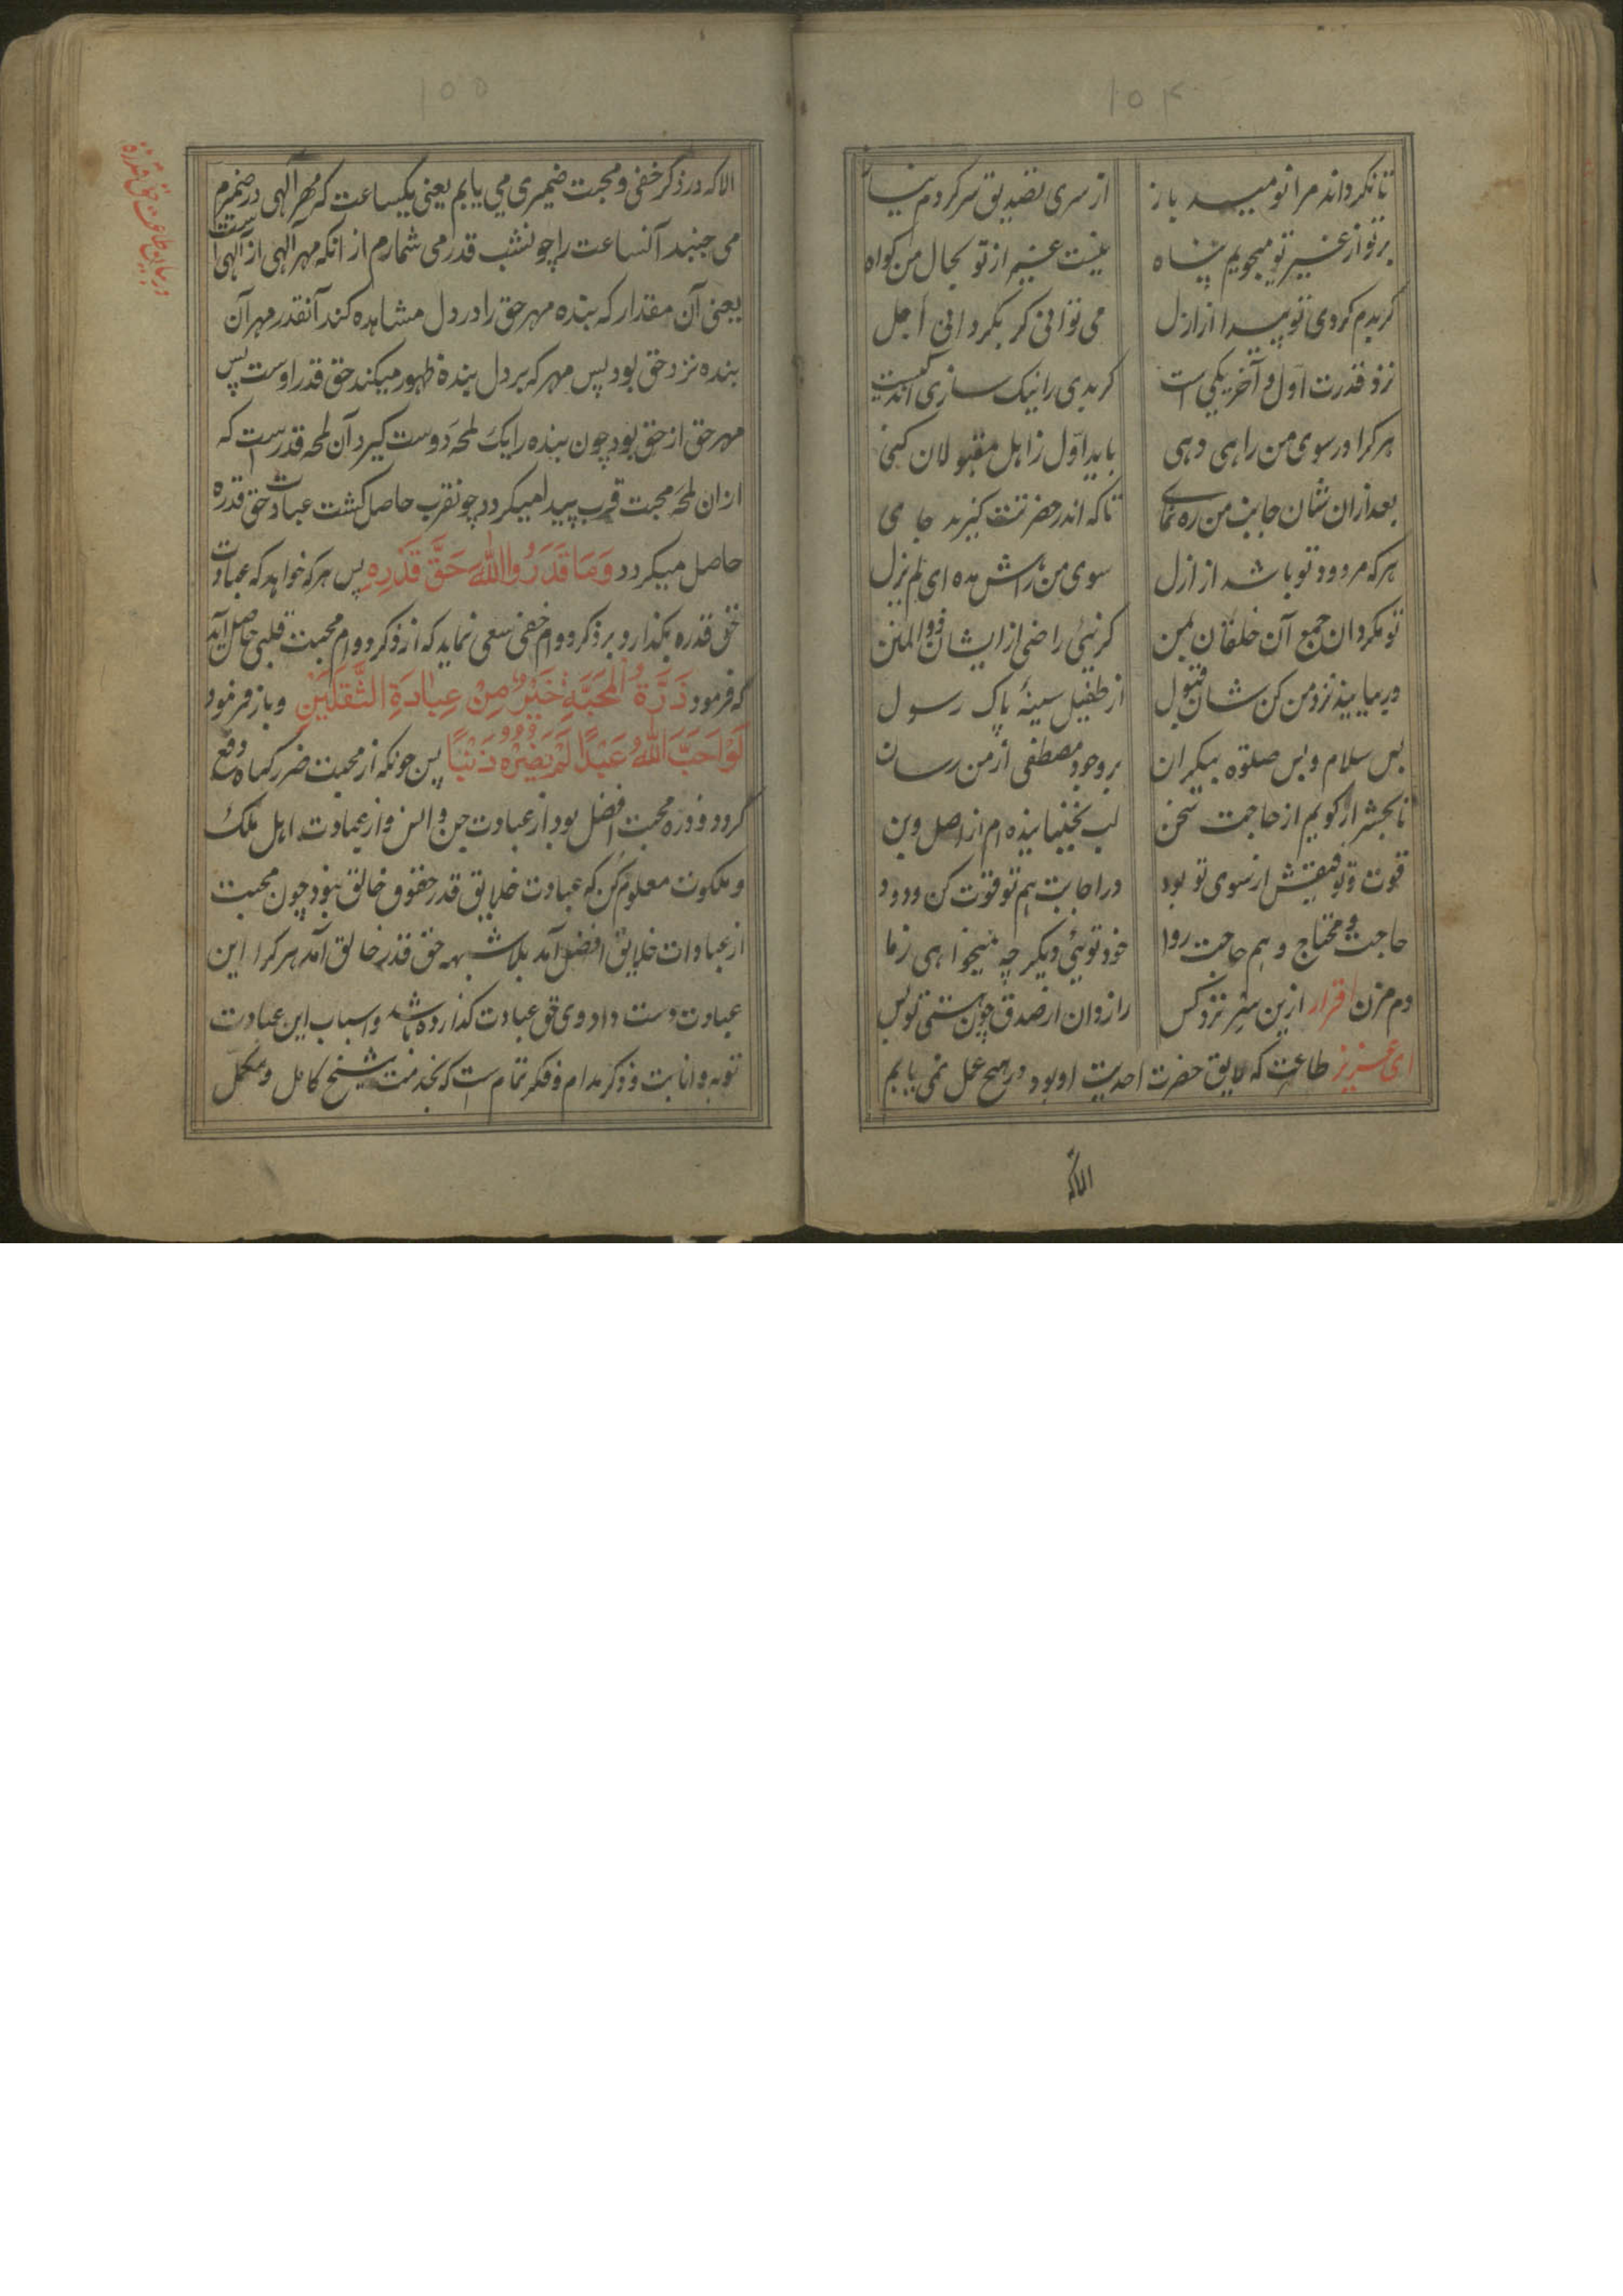 ۱۵۴
تا نکرداند مرا نومید باز از سری تصدیق سر کردم نیاز
بر تو از غیر تو میجویم پناه نیست غیر از تو بحال من کواه
کر بدم کردی تو پیدا از ازل می توانی کر بکردانی اجل
نزد قدرت اول و آخر یکی است کر بدی را نیک سازی اند کیست
هر کرا در سوی من راهی دهی باید اول ز اهل مقبولان کنی
بعد ازان شان جانب من ره نمای تا که اندر حضرتت کیرند جای
هر که مردود تو باشد از ازل سوی من راهش مده ای لم یزل
تو مکردان جمع آن خلقان بمن کر نیی راضی از ایشان ذوالمنن
ور بیایند نزد من کن شان قبول از طفیل سینهٔ پاک رسول
بس سلام و بس صلوة بیکران بر وجود مصطفی از من رسان
تا بحشر ار کویم از حاجت سخن لب بجنبانیده ام از اصل وبن
قوت و توفیقش از سوی تو بود در اجابت هم تو قوت کن ودود
حاجت و محتاج و هم حاجت روا خود تویی دیکر چه میخواهی ز ما
دم مزن اقرار ازین سر نزد کس راز دان از صدق چون هستی تو بس
ای عزیز طاعت که لایق حضرت احدیت او بود در هیچ عمل نمی یابم
الاکه
۱۵۵
الاکه در ذکر خفی و محبت ضمیری می یابم یعنی یکساعت که مهر الهی در ضمیرم
می جنبد آنساعت را چو نشب قدر می شمارم از انکه مهر الهی از الهی است
یعنی آن مقدار که بنده مهر حق را در دل مشاهده کند آنقدر مهر آن
بنده نزد حق بود پس مهر که بر دل بندهٔ ظهور میکند حق قدر اوست پس
مهر حق از حق بود چون بنده را یک لمحه دوست کیرد آن لمحه قدرست که
ازان لمحه محبت قرب پیدا میکردد چو نقرب حاصل کشت عبادت حق قدره
حاصل میکردد وَمَا قَدَرُوا اللّٰهَ حَقَّ قَدْرِهِ پس هر که خواهد که عبادت
حق قدره بکذارد بر ذکر دوام خفی سعی نماید که از ذکر دوام محبت قلبی حاصل آید
که فرمود ذَرَّةُ الْمَحَبَّةِ خَيْرٌ مِنْ عِبَادَةِ الثَّقَلَيْنِ و باز فرمود
لَوْ اَحَبَّ اللّٰهُ عَبْدًا لَمْ يَضُرُّهُ ذَنْبًا پس چونکه از محبت ضرر کناه دفع
کردد و ذره محبت افضل بود از عبادت جن و انس و از عبادت اهل ملک
و ملکوت معلوم کن که عبادت خلایق قدر حقوق خالق نبود چون محبت
از عبادات خلایق افضل آمد بلا شبهه حق قدر خالق آمد هر کرا این
عبادت دست داد وی حق عبادت کذارده باشد و اسباب این عبادت
توبه و انابت و ذکر مدام و فکر تمام است که بخدمت شیخ کامل و مکمل
در بیان طاعت حق قدره